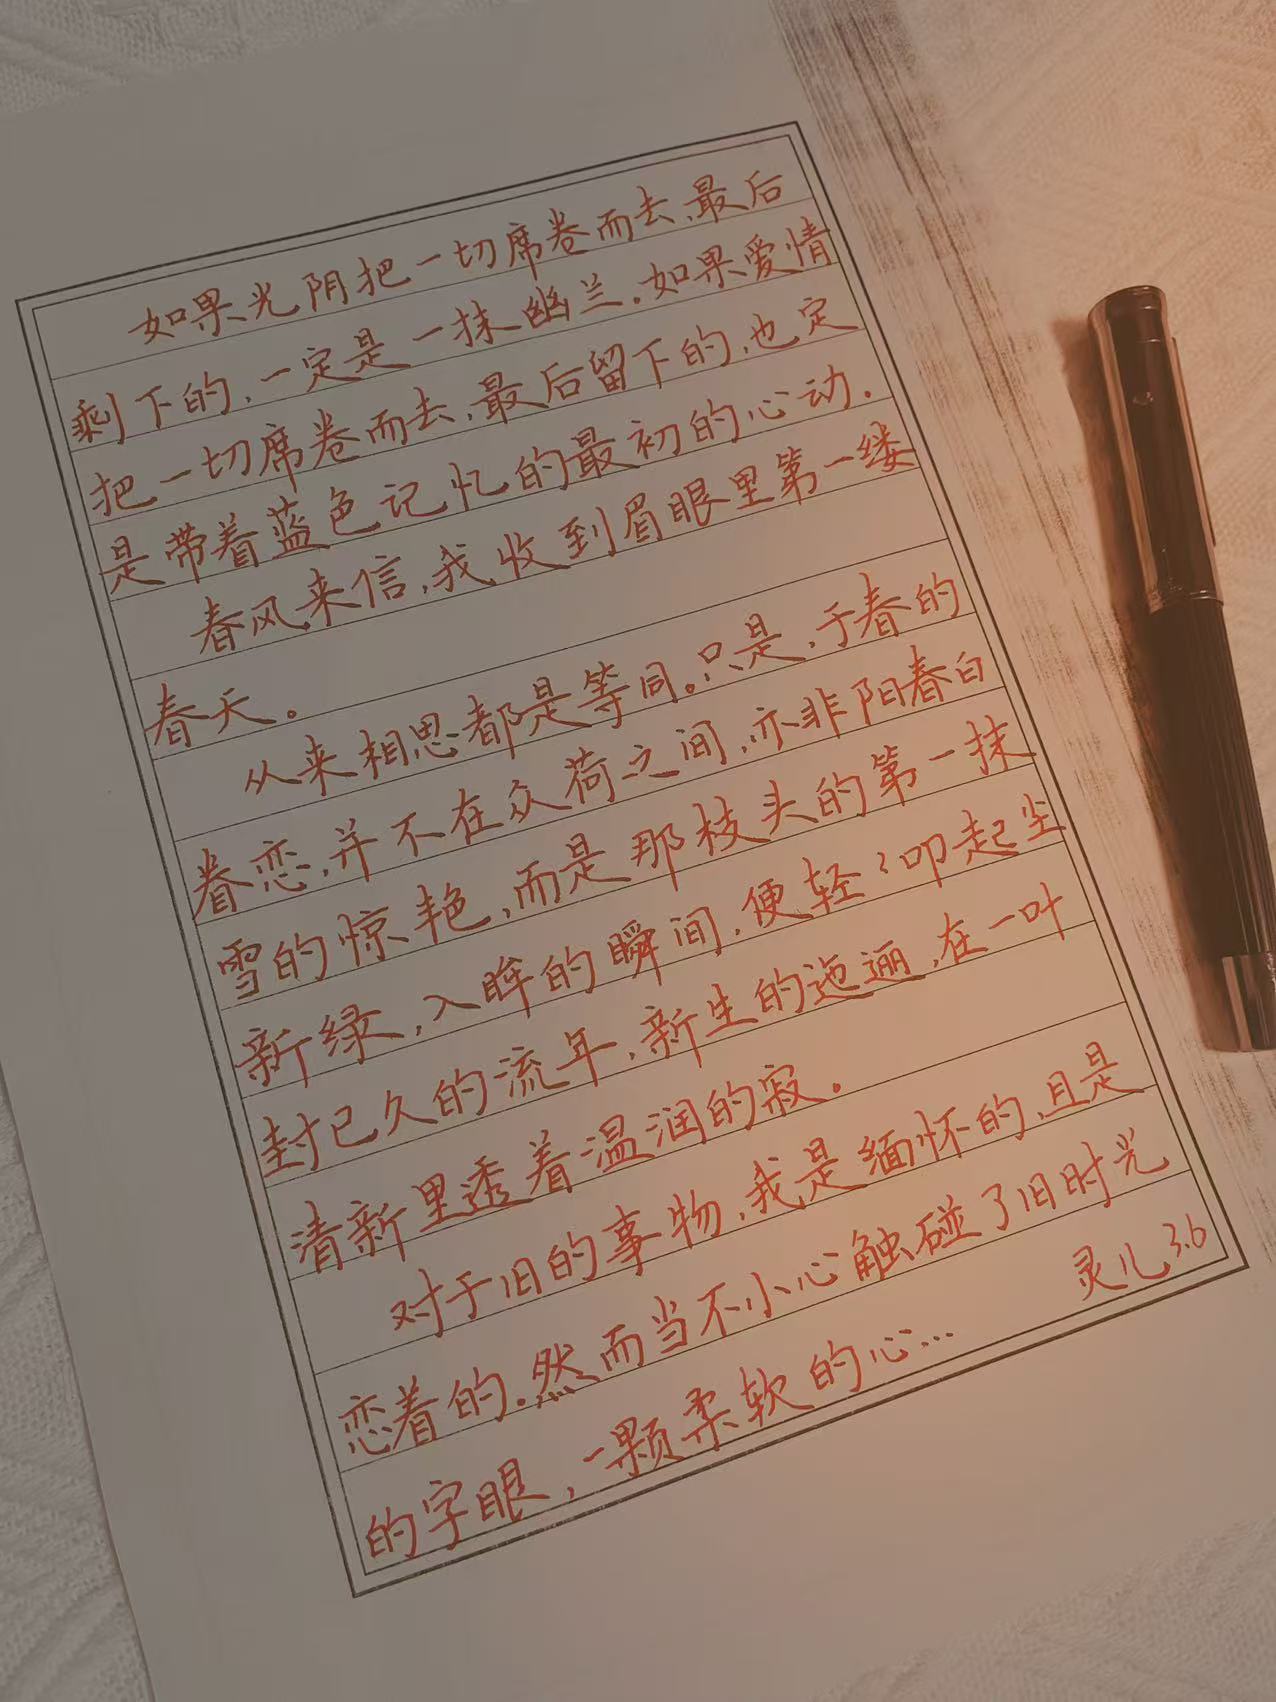 如果光阴把一切席卷而去,最后
剩下的,一定是一抹幽兰.如果爱情
把一切席卷而去,最后留下的,也定
是带着蓝色记忆的最初的心动.
春风来信,我收到眉眼里第一缕
春天。
从来相思都是等同。只是,于春的
眷恋,并不在众荷之间,亦非阳春白
雪的惊艳,而是那枝头的第一抹
新绿,入眸的瞬间,便轻〻叩起尘
封已久的流年,新生的迤逦,在一叶
清新里透着温润的寂.
对于旧的事物,我是缅怀的,且是
恋着的.然而当不小心触碰了旧时光
的字眼,一颗柔软的心…
灵儿 3.6